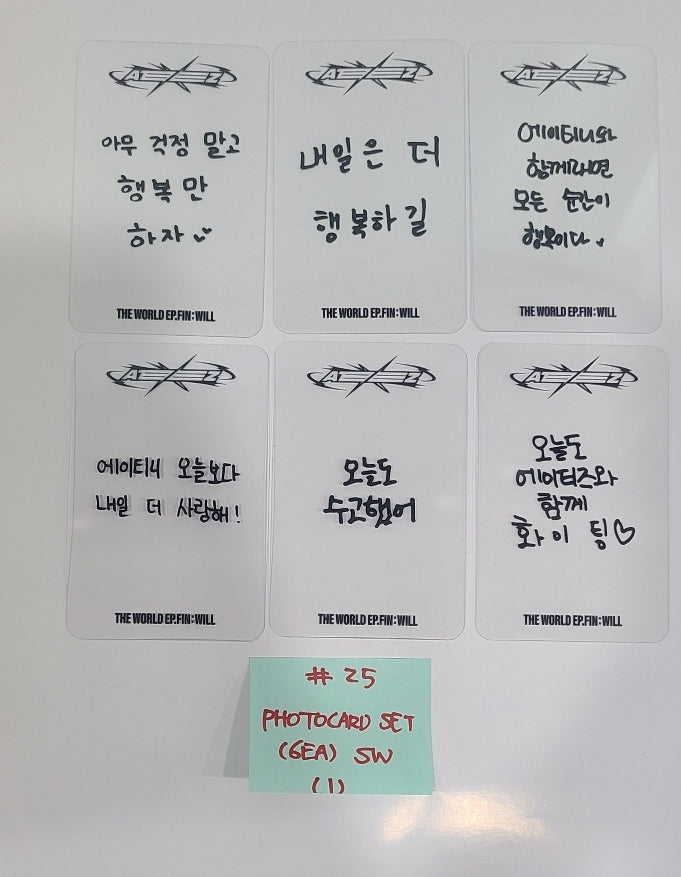 ATEEZ
아무 걱정 말고
행복만
하자
THE WORLD EP.FIN:WILL
ATEEZ
내일은 더
행복하길
THE WORLD EP.FIN:WILL
ATEEZ
에이티니와
함께라면
모든 순간이
행복이다
THE WORLD EP.FIN:WILL
ATEEZ
에이티니 오늘보다
내일 더 사랑해!
THE WORLD EP.FIN:WILL
ATEEZ
오늘도
수고했어
THE WORLD EP.FIN:WILL
ATEEZ
오늘도
에이티즈와
함께
화이팅♡
THE WORLD EP.FIN:WILL
# 25
PHOTOCARD SET
(6EA) SW
(1)